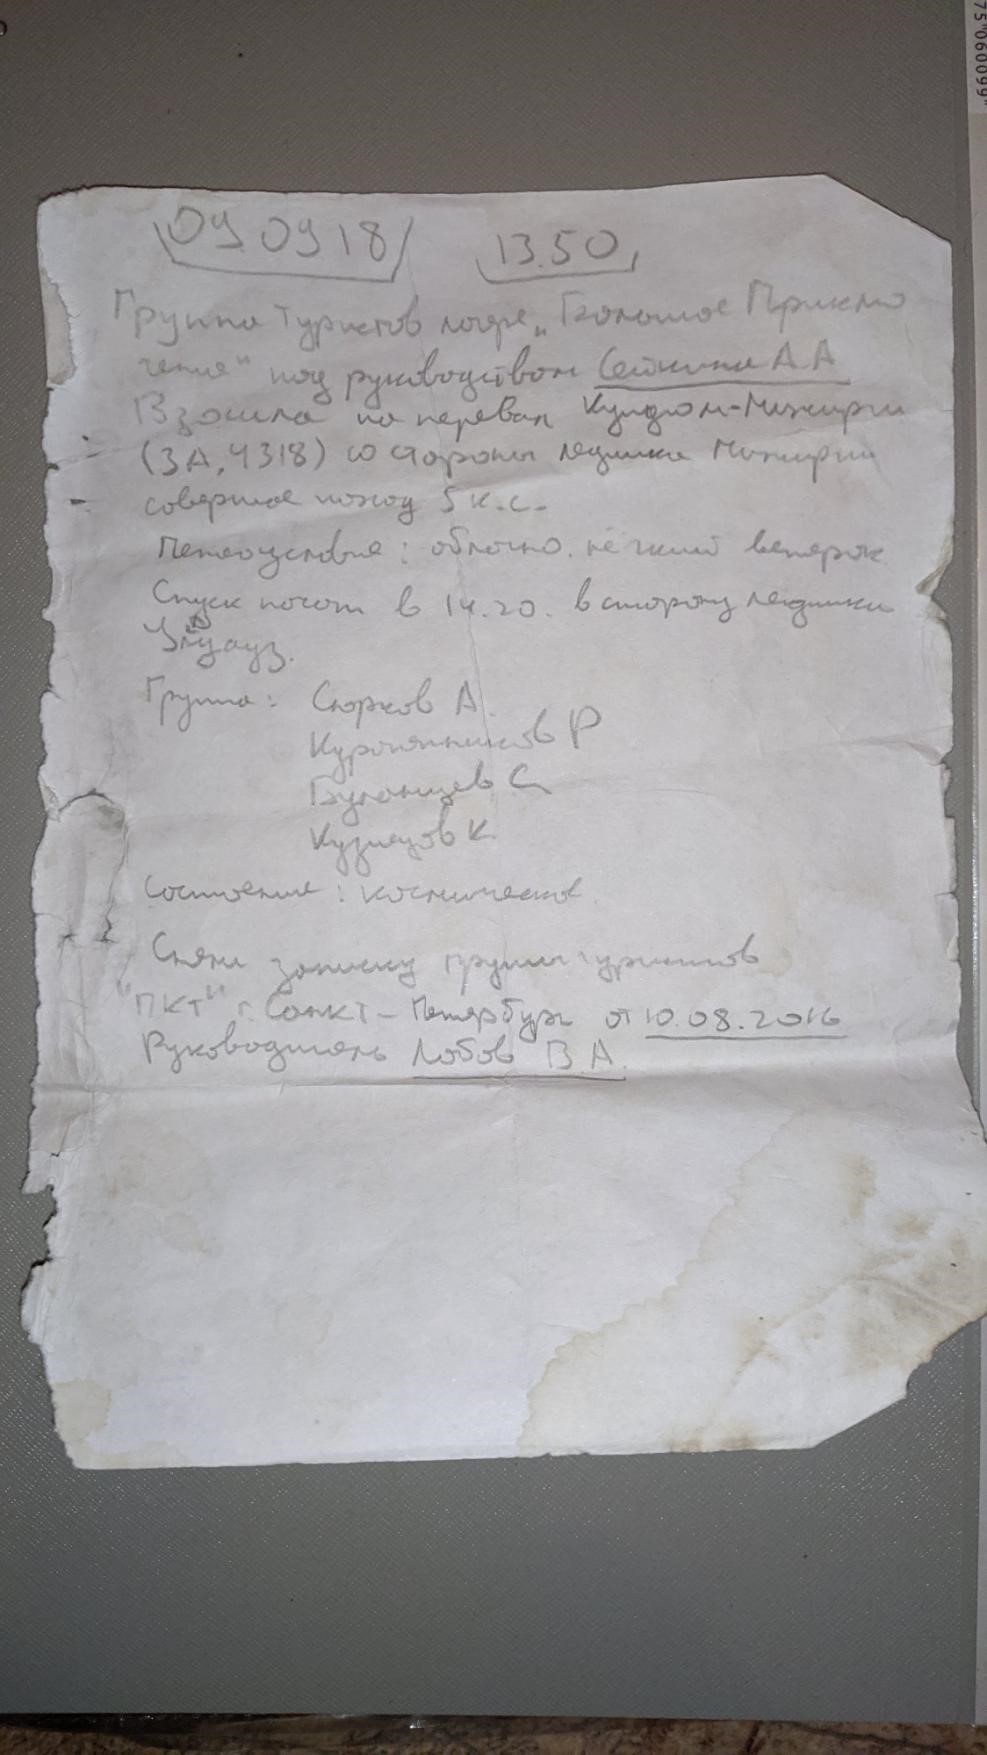 09.09.18 13.50
Группа туристов "Большое Приклю
чение" под руководством А А
Взошла на перевал Кундюм-Мижирги
(3А, 4318) со стороны ледника Мижирги
совершая поход 5 к.с.
Метеоусловия: облачно. лёгкий ветерок
Спуск начат в 14.20. в сторону ледника
Группа: Сюрков А.
Куропятников Р
С
Кузнецов К.
Состояние: космическое
Сняли записку группы туристов
"ПКТ" г. Санкт-Петербург от 10.08.2016
Руководитель Лобов В.А.
75"060099"